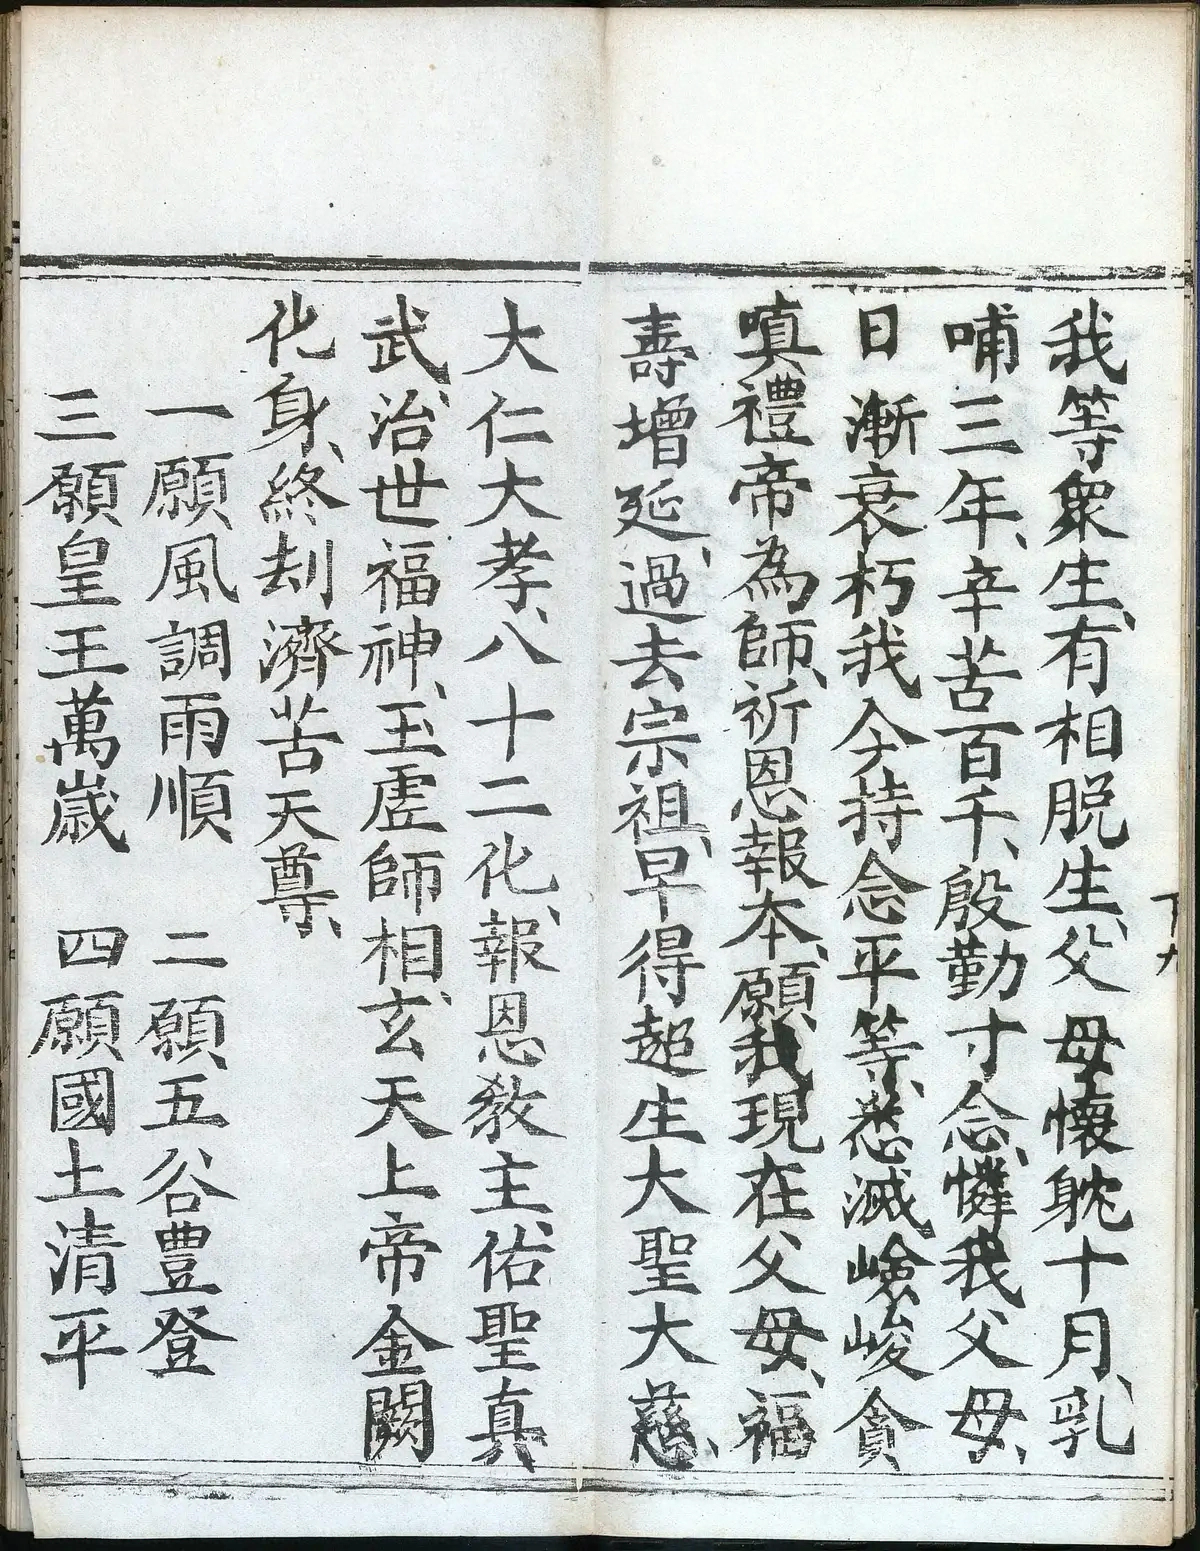 我等衆生、有相脱生、父母懐躭十月、乳
哺三年、辛苦百千、殷勤寸念、憐我父母、
日漸衰朽我今持念平等、悉滅嶮峻貪
嗔禮帝為師、祈恩報本、願我現在父母、福
壽增延、過去宗祖、早得超生大聖大慈、
大仁大孝、八十二化、報恩教主、佑聖真
武、治世福神、玉虗師相、玄天上帝金闕
化身、終刦濟苦天尊、
一願風調雨順　二願五谷豊登
三願皇王萬歳　四願國土清平
下九